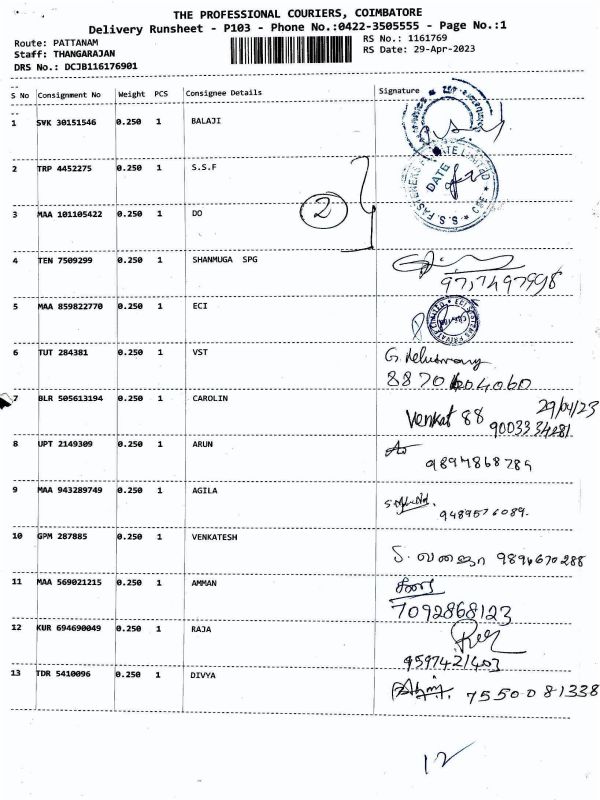 THE PROFESSIONAL COURIERS, COIMBATORE
Delivery Runsheet - P103 - Phone No.:0422-3505555 - Page No.:1
Route: PATTANAM
RS No.: 1161769
Staff: THANGARAJAN
RS Date: 29-Apr-2023
DRS No.: DCJB116176901
S No Consignment No Weight PCS Consignee Details Signature
1 SVK 30151546 0.250 1 BALAJI
2 TRP 4452275 0.250 1 S.S.F
S.S. FASTENERS LIMITED CBE DATE
3 MAA 101105422 0.250 1 DO
2
4 TEN 7509299 0.250 1 SHANMUGA SPG
5 MAA 859822770 0.250 1 ECI
6 TUT 284381 0.250 1 VST
7 BLR 505613194 0.250 1 CAROLIN
29/04/23
Venkat 88
9003334281
8 UPT 2149309 0.250 1 ARUN
9894868789
9 MAA 943289749 0.250 1 AGILA
9489576089.
10 GPM 287885 0.250 1 VENKATESH
9894670288
11 MAA 569021215 0.250 1 AMMAN
7092868123
12 KUR 694690049 0.250 1 RAJA
9597421403
13 TDR 5410096 0.250 1 DIVYA
7550081338
12